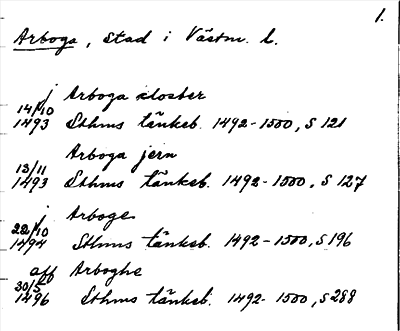 1.
Arboga, stad i Västm. l.
i Arboga closter
14/10
1493 Sthms tänkeb. 1492-1500, S 121
Arboga jern
13/11
1493 Sthms tänkeb. 1492-1500, S 127
i Arboge
22/10
1494 Sthms tänkeb. 1492-1500, S 196
aff Arboghe
30/5
1496 Sthms tänkeb. 1492-1500, S 288